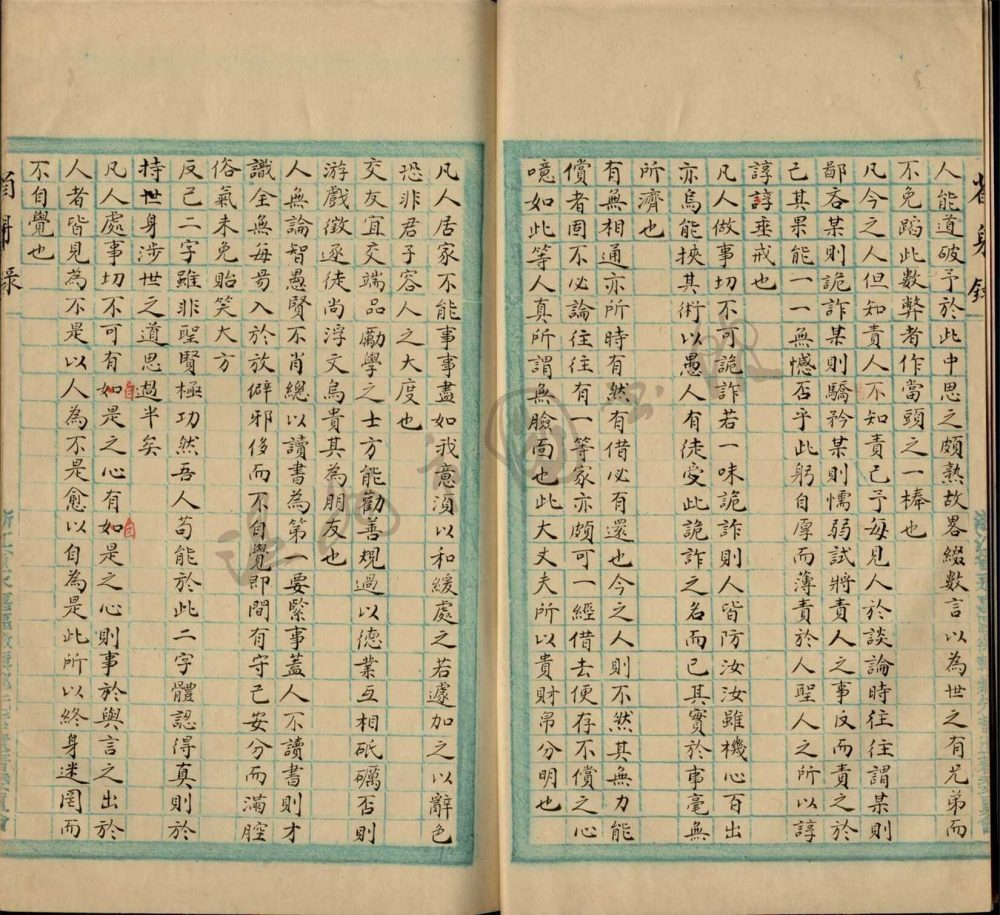 省身錄
人能道破予於此中思之頗熟故畧綴數言以為世之有兄弟而
不免蹈此數弊者作當頭之一棒也
凡今之人但知責人不知責己予每見人於談論時往往謂某則
鄙吝某則詭詐某則驕矜某則懦弱試將責人之事反而責之於
己其果能一一無憾否乎此躬自厚而薄責於人聖人之所以諄
諄諄垂戒也
凡人做事切不可詭詐若一味詭詐則人皆防汝汝雖機心百出
亦烏能挾其術以愚人有徒受此詭詐之名而已其實於事毫無
所濟也
有無相通亦所時有然有借必有還也今之人則不然其無力能
償者固不必論往往有一等家亦頗可一經借去便存不償之心
噫如此等人真所謂無臉面也此大丈夫所以貴財帛分明也
凡人居家不能事事盡如我意須以和緩處之若遽加之以辭色
恐非君子容人之大度也
交友宜交端品勵學之士方能勸善規過以德業互相砥礪否則
游戲徵逐徒尚浮文烏貴其為朋友也
人無論智愚賢不肖總以讀書為第一要緊事蓋人不讀書則才
識全無每易入於放僻邪侈而不自覺即間有守己安分而滿腔
俗氣未免貽笑大方
反己二字雖非聖賢極功然吾人苟能於此二字體認得真則於
持世身涉世之道思過半矣
凡人處事切不可有如是之心有如是之心則事於與言之出於
自
自
人者皆見為不是以人為不是愈以自為是此所以終身迷罔而
不自覺也